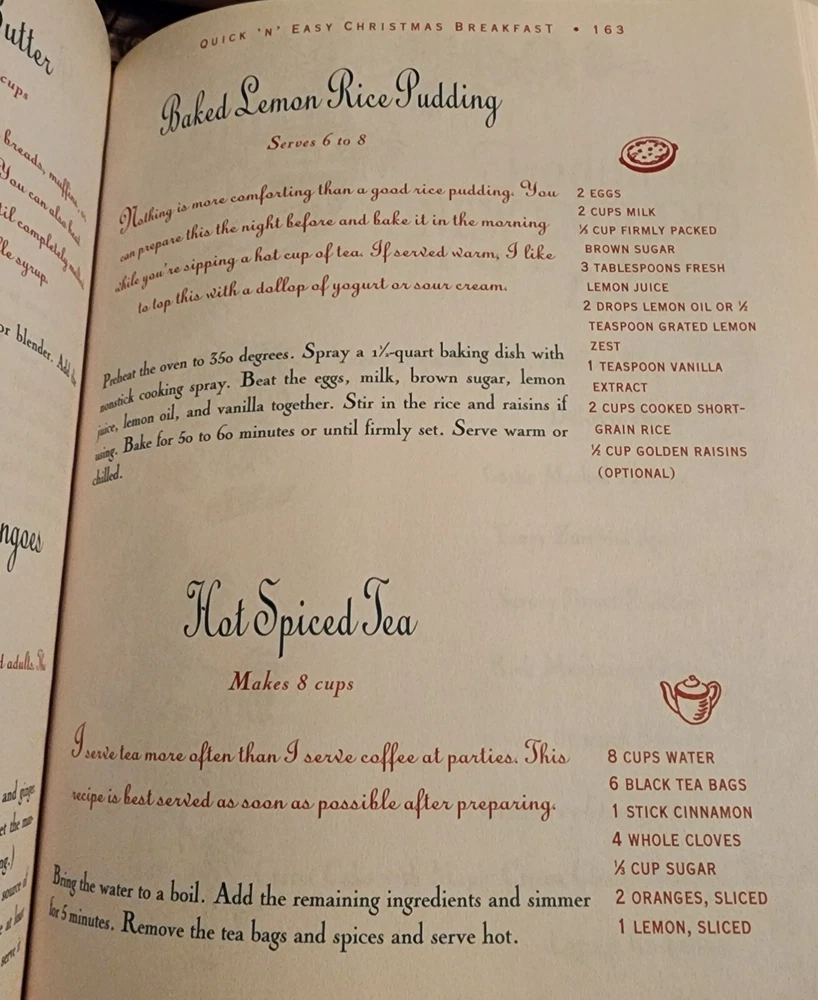 QUICK 'N' EASY CHRISTMAS BREAKFAST • 163
Baked Lemon Rice Pudding
Serves 6 to 8
Nothing is more comforting than a good rice pudding. You
can prepare this the night before and bake it in the morning
while you're sipping a hot cup of tea. If served warm, I like
to top this with a dollop of yogurt or sour cream.
2 EGGS
2 CUPS MILK
CUP FIRMLY PACKED
BROWN SUGAR
3 TABLESPOONS FRESH
LEMON JUICE
2 DROPS LEMON OIL OR ½
TEASPOON GRATED LEMON
ZEST
1 TEASPOON VANILLA
EXTRACT
2 CUPS COOKED SHORT-
GRAIN RICE
½ CUP GOLDEN RAISINS
(OPTIONAL)
Preheat the oven to 350 degrees. Spray a 1½-quart baking dish with
nonstick cooking spray. Beat the eggs, milk, brown sugar, lemon
juice, lemon oil, and vanilla together. Stir in the rice and raisins if
using. Bake for 50 to 60 minutes or until firmly set. Serve warm or
chilled.
Hot Spiced Tea
Makes 8 cups
I serve tea more often than I serve coffee at parties. This
recipe is best served as soon as possible after preparing.
8 CUPS WATER
6 BLACK TEA BAGS
1 STICK CINNAMON
4 WHOLE CLOVES
⅓ CUP SUGAR
2 ORANGES, SLICED
1 LEMON, SLICED
Bring the water to a boil. Add the remaining ingredients and simmer
for 5 minutes. Remove the tea bags and spices and serve hot.
Butter
cups
breads, muffins,
You can also
completely
syrup.
or blender. Add
ngoes
adults.
and ginger